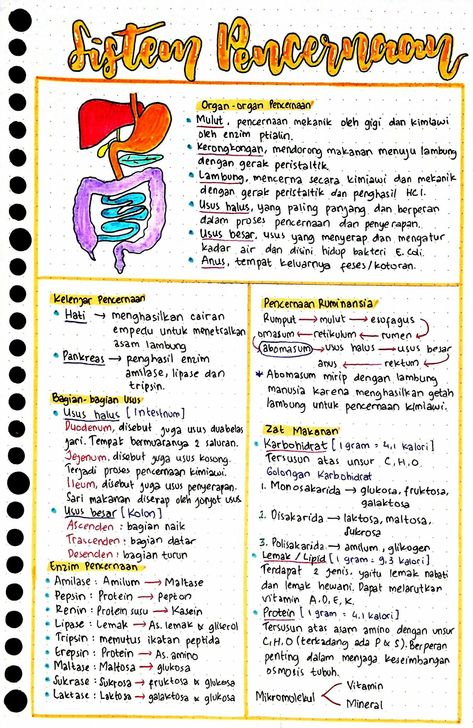 Sistem Pencernaan
Organ-organ Pencernaan
• Mulut, pencernaan mekanik oleh gigi dan kimiawi
oleh enzim ptialin.
• Kerongkongan, mendorong makanan menuju lambung
dengan gerak peristaltik.
• Lambung, mencerna secara kimiawi dan mekanik
dengan gerak peristaltik dan penghasil HCl.
• Usus halus, yang paling panjang dan berperan
dalam proses pencernaan dan penyerapan.
• Usus besar, usus yang menyerap dan mengatur
kadar air dan disini hidup bakteri E. Coli.
• Anus, tempat keluarnya feses/kotoran.
Kelenjar Pencernaan
• Hati → menghasilkan cairan
empedu untuk menetralkan
asam lambung
• Pankreas → penghasil enzim
amilase, lipase dan
tripsin.
Bagian-bagian Usus
• Usus halus [Intestnum]
Duodenum, disebut juga usus duabelas
jari. Tempat bermuaranya 2 saluran.
Jejenum, disebut juga usus kosong.
Terjadi proses pencernaan kimiawi.
Ileum, disebut juga usus penyerapan.
Sari makanan diserap oleh jonjot usus
• Usus besar [Kolon]
Ascenden : bagian naik
Trascenden : bagian datar
Desenden : bagian turun
Enzim Pencernaan
• Amilase : Amilum → Maltase
• Pepsin : Protein → pepton
• Renin : Protein susu → Kasein
• Lipase : Lemak → As. lemak & gliserol
• Tripsin : memutus ikatan peptida
• Erepsin : Protein → As. amino
• Maltase : Maltosa → glukosa
• Sukrase : Sukrosa → fruktosa & glukosa
• Laktase : Laktosa → galaktosa & glukosa
Pencernaan Ruminansia
Rumput → mulut → esofagus
omasum ← retikulum ← rumen
abomasum → usus halus → usus besar
anus ← rektum
* Abomasum mirip dengan lambung
manusia karena menghasilkan getah
lambung untuk pencernaan kimiawi.
Zat Makanan
• Karbohidrat [1 gram = 4,1 kalori]
Tersusun atas unsur C, H, O.
Golongan Karbohidrat
1. Monosakarida → glukosa, fruktosa,
galaktosa
2. Disakarida → laktosa, maltosa,
sukrosa
3. Polisakarida → amilum, glikogen
• Lemak / Lipid [1 gram = 9,3 kalori]
Terdapat 2 jenis, yaitu lemak nabati
dan lemak hewani. Dapat melarutkan
vitamin A, D, E, K.
• Protein [1 gram = 4,1 kalori]
Tersusun atas asam amino dengan unsur
C, H, O (terkadang ada P & S). Berperan
penting dalam menjaga keseimbangan
osmosis tubuh.
Mikromolekul
Vitamin
Mineral